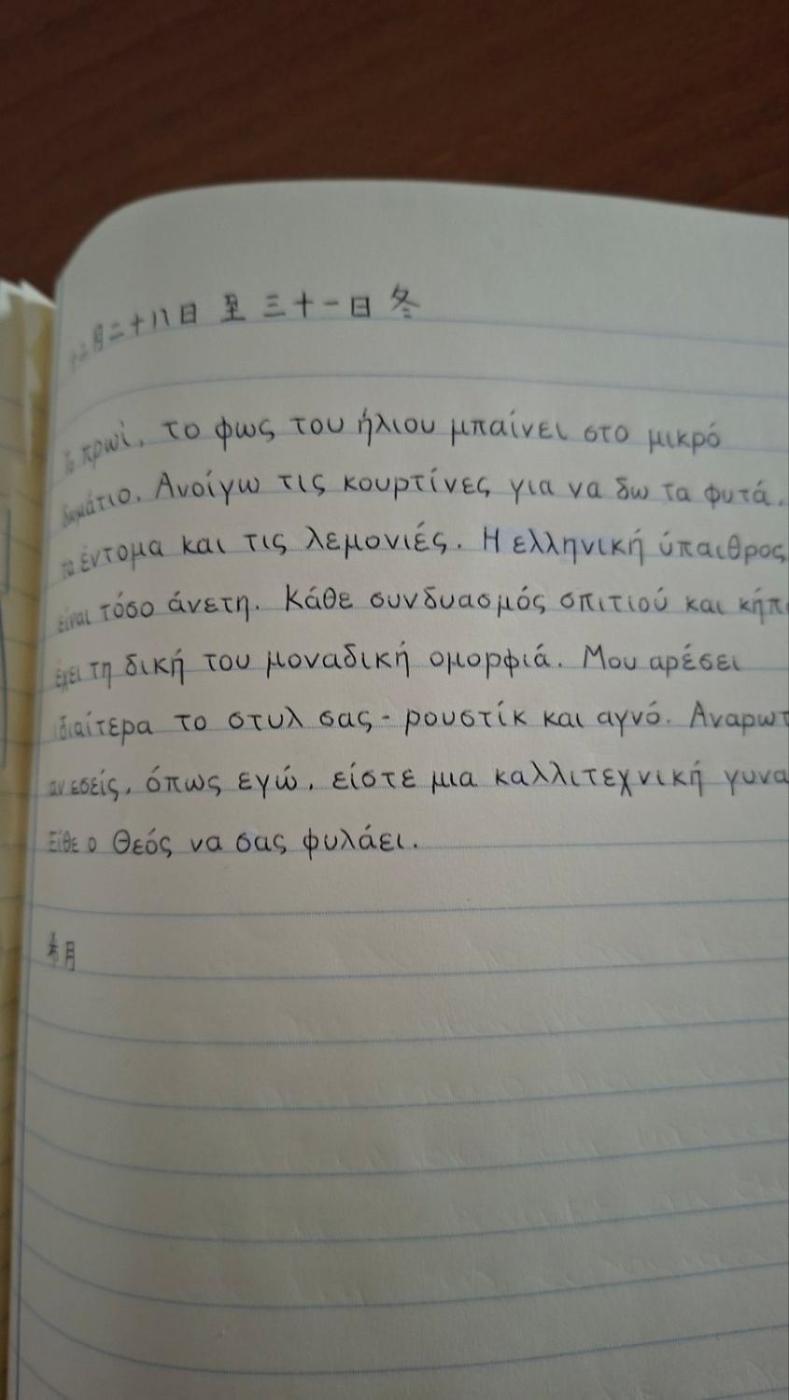 十二月二十八日 至 三十一日 冬
Το πρωί, το φως του ήλιου μπαίνει στο μικρό
δωμάτιο. Ανοίγω τις κουρτίνες για να δω τα φυτά,
τα έντομα και τις λεμονιές. Η ελληνική ύπαιθρος
είναι τόσο άνετη. Κάθε συνδυασμός σπιτιού και κήπ
έχει τη δική του μοναδική ομορφιά. Μου αρέσει
ιδιαίτερα το στυλ σας - ρουστίκ και αγνό. Αναρωτ
αν εσείς, όπως εγώ, είστε μια καλλιτεχνική γυνα
Είθε ο Θεός να σας φυλάει.